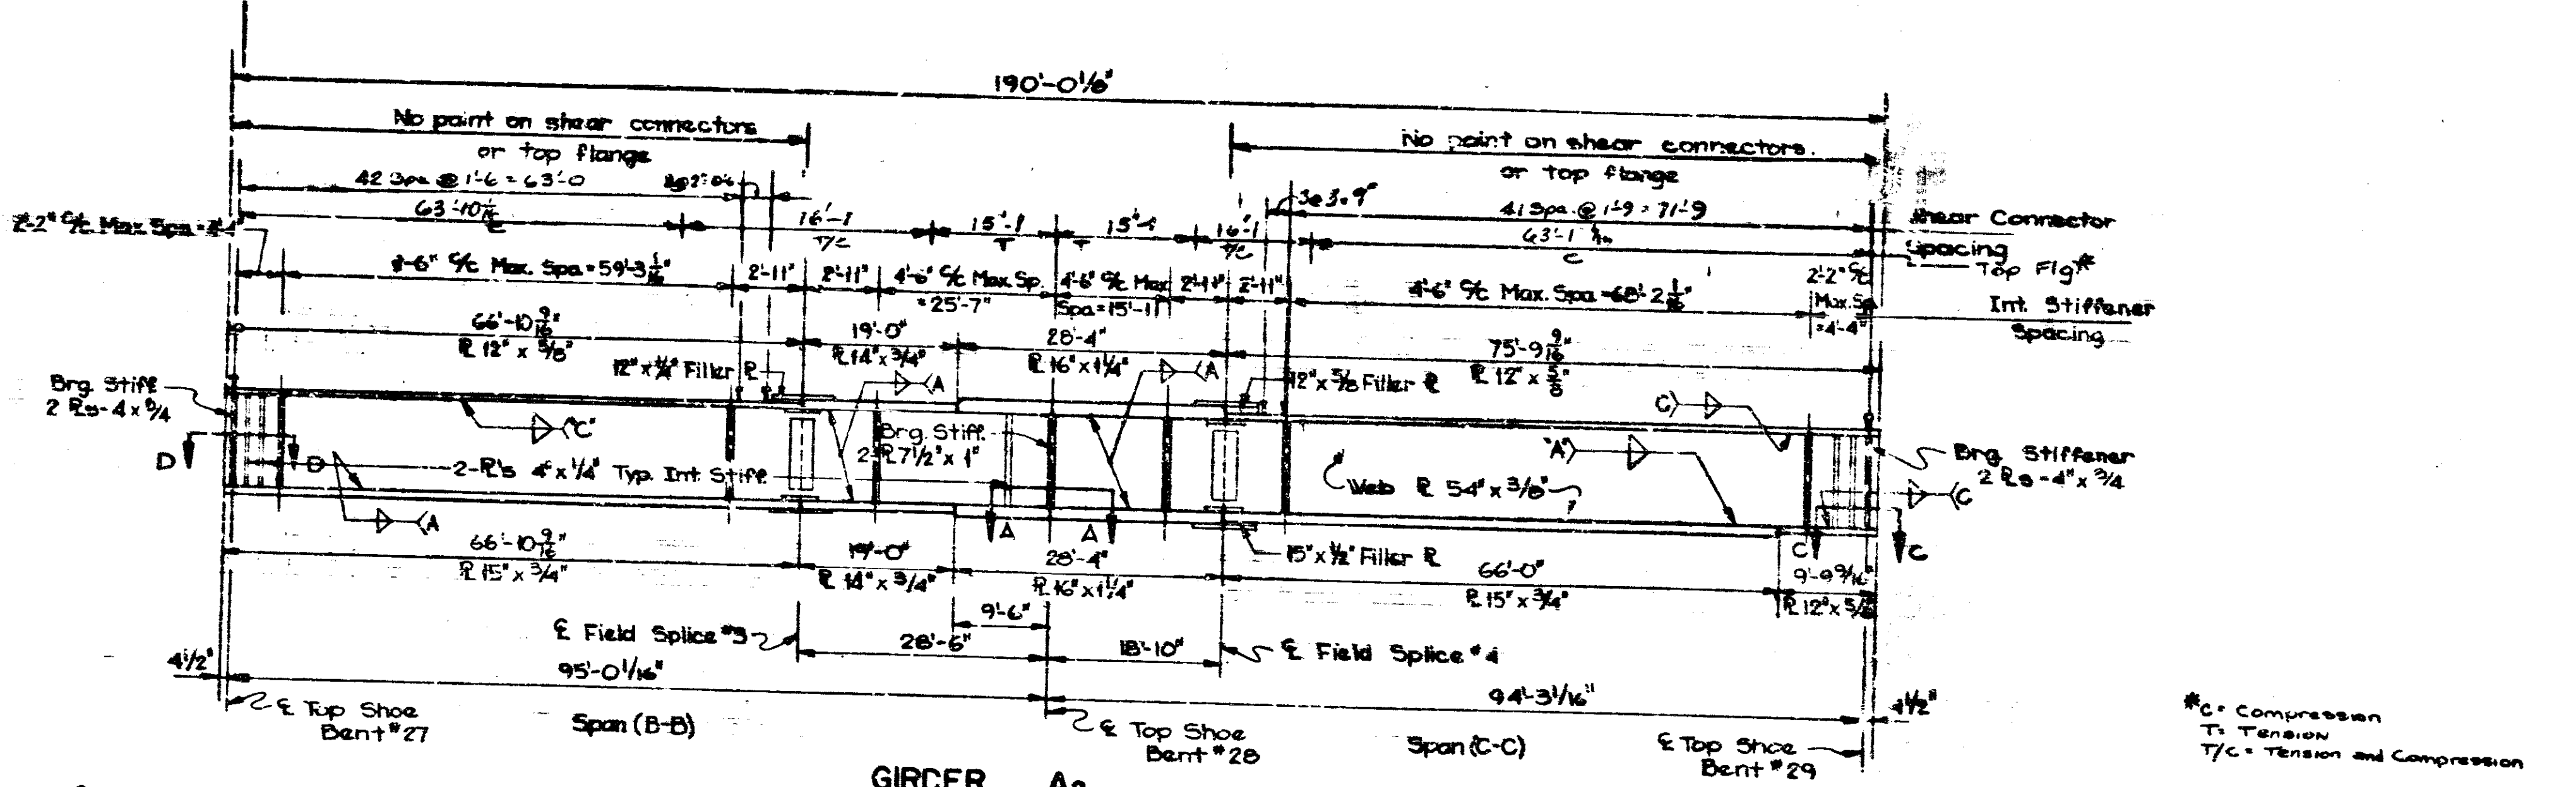 190'-0 1/8"
No paint on shear connectors
or top flange
No paint on shear connectors.
or top flange
42 Spa. @ 1'-6 = 63'-0
3@3'-9"
41 Spa. @ 1'-9 = 71'-9
Shear Connector
Spacing
63'-10 1/16
C
16'-1
T/C
15'-1
T
15'-1
T
16'-1
T/C
63'-1
C
Top Flg*
2'-2" c/c Max. Spa =
-6" c/c Max. Spa = 59'-3 1/16"
2'-11"
2'-11"
4'-6" c/c Max. Sp.
= 25'-7"
4'-6" c/c Max
Spa = 15'-11"
2'-11"
2'-11"
4'-6" c/c Max. Spa = 68'-2 1/16"
2'-2" c/c
Max. Sp
= 4'-4"
Int. Stiffener
Spacing
66'-10 9/16"
PL 12" x 5/8"
19'-0"
PL 14" x 3/4"
28'-4"
PL 16" x 1 1/4"
75'-9 9/16"
PL 12" x 5/8"
Brg. Stiff
2 PLs - 4 x 3/4
Filler PL
A
A
12" x 5/8 Filler PL
"C"
Brg. Stiff.
2-PL 7 1/2" x 1"
C
"A"
D
D
2-PL's 4" x 1/4" Typ. Int. Stiff.
Web PL 54" x 3/8"
Brg. Stiffener
2 PLs - 4" x 3/4
C
A
A
A
C
C
66'-10 9/16"
PL 15" x 3/4"
19'-0"
PL 14" x 3/4"
28'-4"
PL 16" x 1 1/4"
15" x 1/2" Filler PL
66'-0"
PL 15" x 3/4"
9'-9 9/16"
PL 12" x 5/8
9'-6"
℄ Field Splice #3
28'-6"
18'-10"
℄ Field Splice #4
4 1/2"
95'-0 1/16"
94'-3 1/16"
4 1/2"
℄ Top Shoe
Bent #27
Span (B-B)
℄ Top Shoe
Bent #28
Span (C-C)
℄ Top Shoe
Bent #29
*C = Compression
T = Tension
T/C = Tension and Compression
GIRDER